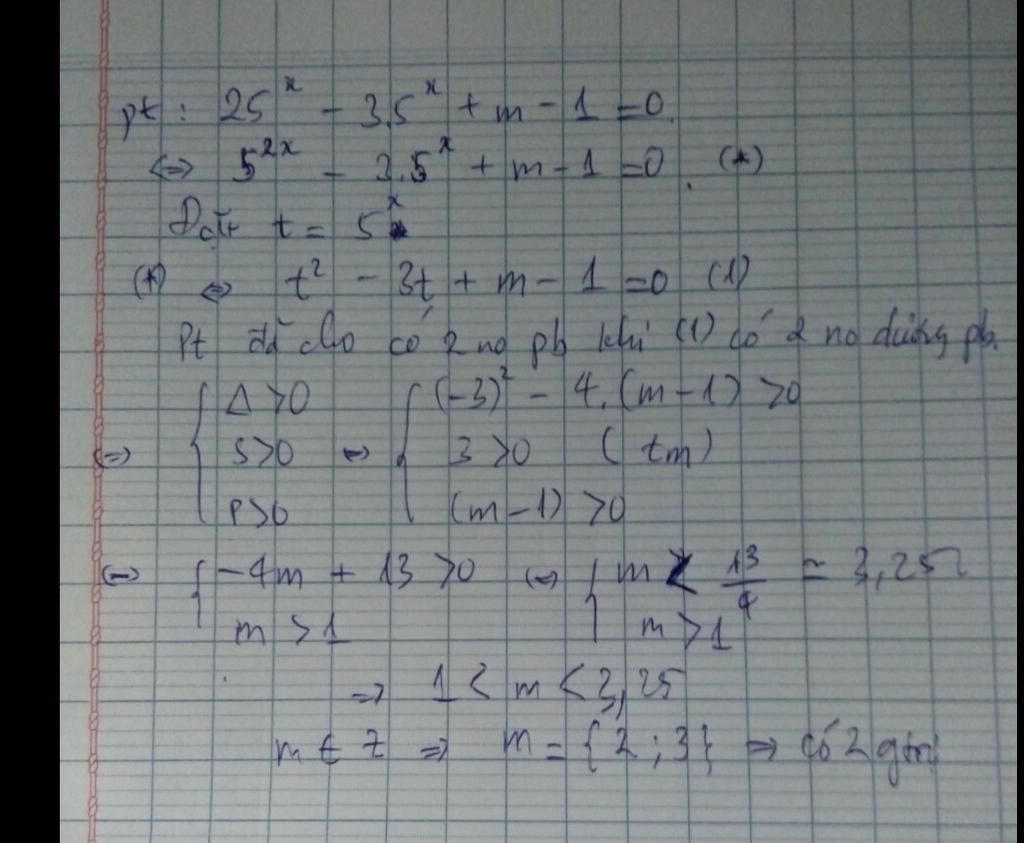 pt : 25^x - 3.5^x + m - 1 = 0.
⇔ 5^2x - 3.5^x + m - 1 = 0. (*)
Đặt t = 5^x
(*) ⇔ t² - 3t + m - 1 = 0 (1)
Pt đã cho có 2 no pb khi (1) có 2 no dương pb.
⇔ { Δ > 0 ⇔ { (-3)² - 4.(m - 1) > 0
S > 0 3 > 0 (tm)
P > 0 (m - 1) > 0
⇔ { -4m + 13 > 0 ⇔ { m < 13/4 = 3,25
m > 1 m > 1
⇒ 1 < m < 3,25
m ∈ Z ⇒ m = {2 ; 3} ⇒ có 2 gtrị